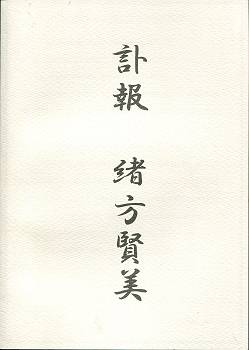 訃報　緒方賢美